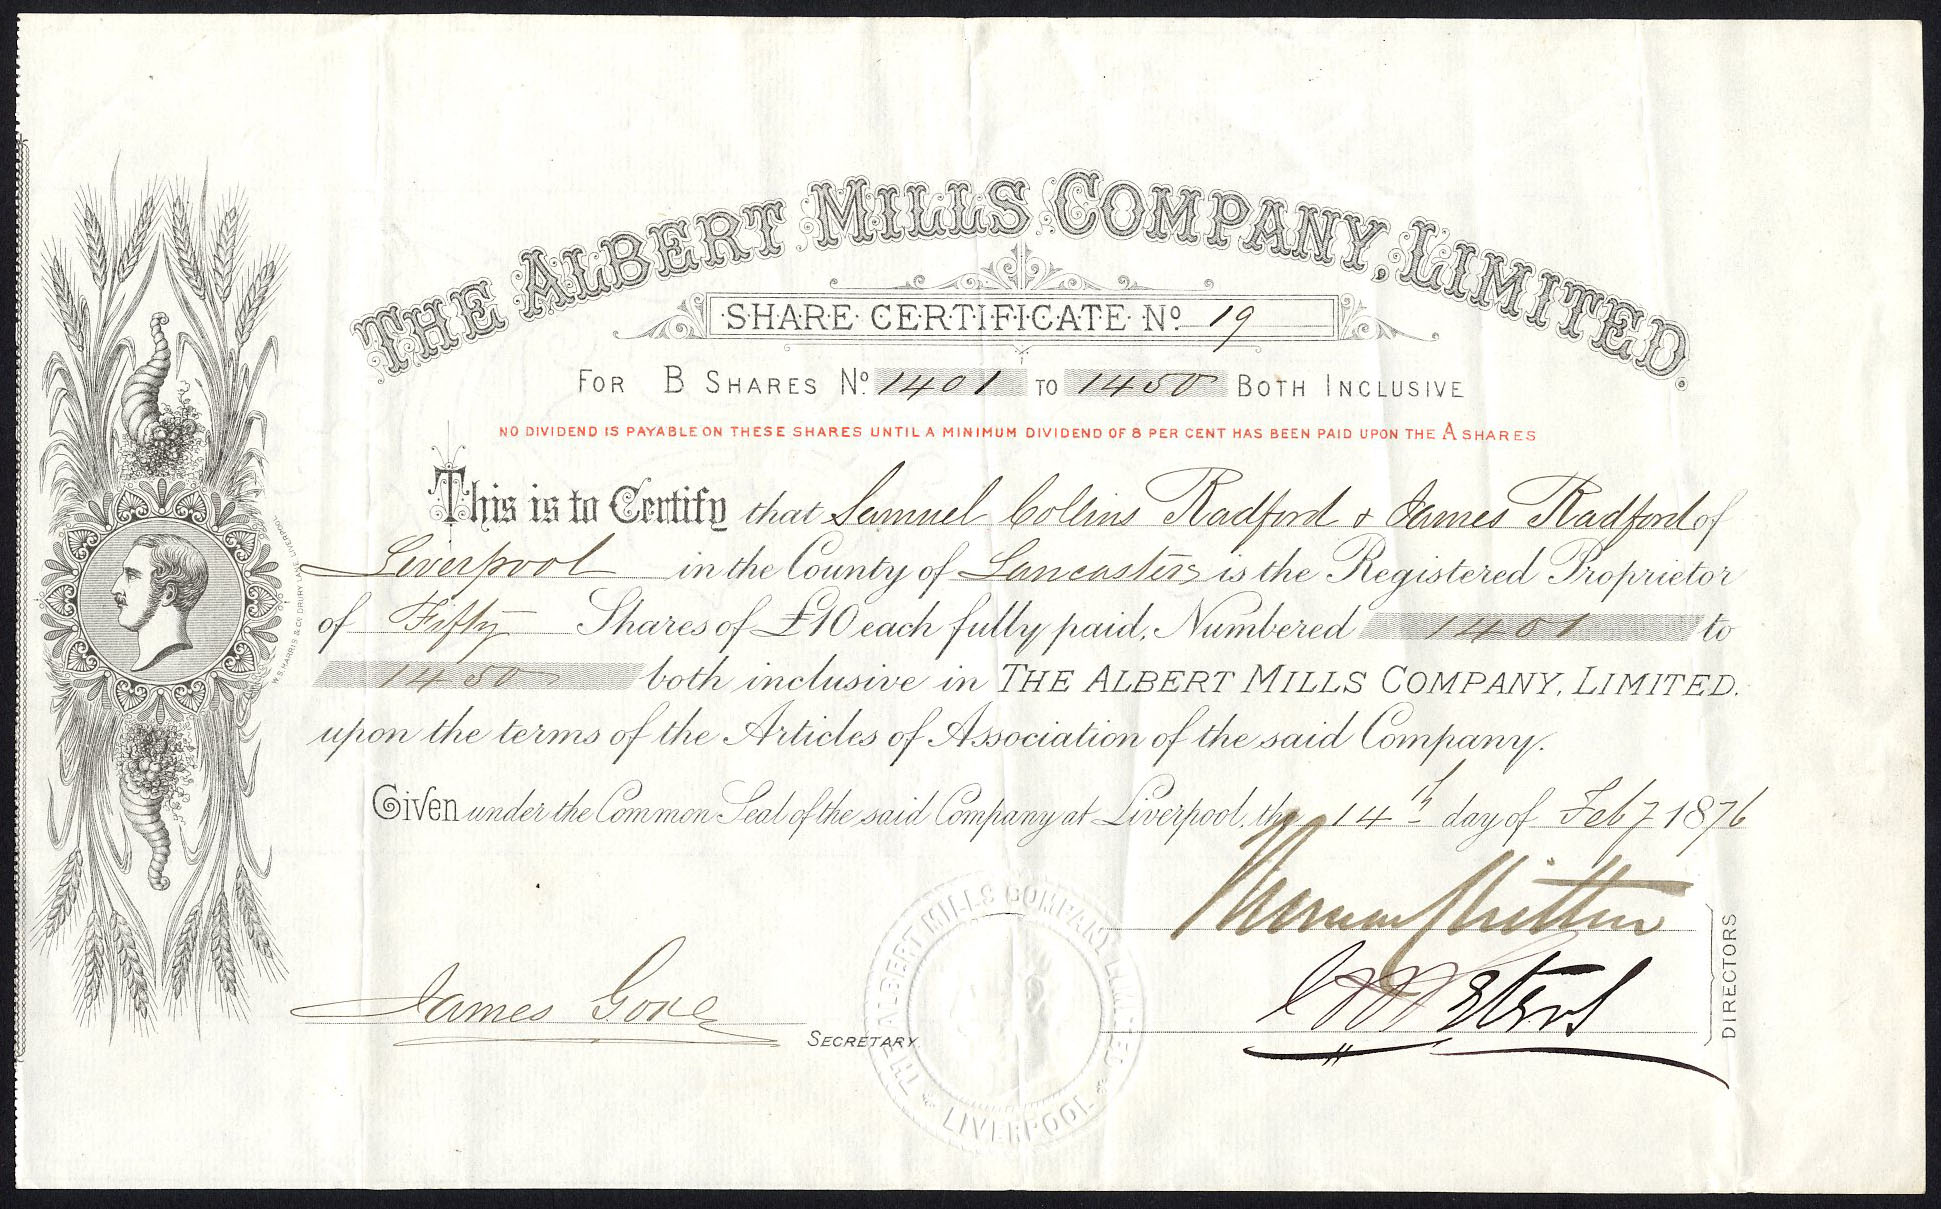 THE ALBERT MILLS COMPANY, LIMITED.
SHARE CERTIFICATE No. 19
FOR B SHARES No. 1401 TO 1450 BOTH INCLUSIVE
NO DIVIDEND IS PAYABLE ON THESE SHARES UNTIL A MINIMUM DIVIDEND OF 8 PER CENT HAS BEEN PAID UPON THE A SHARES
This is to Certify that Samuel Collins Radford & James Radford of
Liverpool in the County of Lancaster is the Registered Proprietor
of Fifty Shares of £10 each fully paid, Numbered 1401 to
1450 both inclusive in THE ALBERT MILLS COMPANY, LIMITED.
upon the terms of the Articles of Association of the said Company.
Given under the Common Seal of the said Company at Liverpool, the 14th day of Feby 1876
DIRECTORS
James Gore
SECRETARY.
THE ALBERT MILLS COMPANY LIMITED
LIVERPOOL
W.S. HARRIS & CO. DRURY LANE LIVERPOOL.